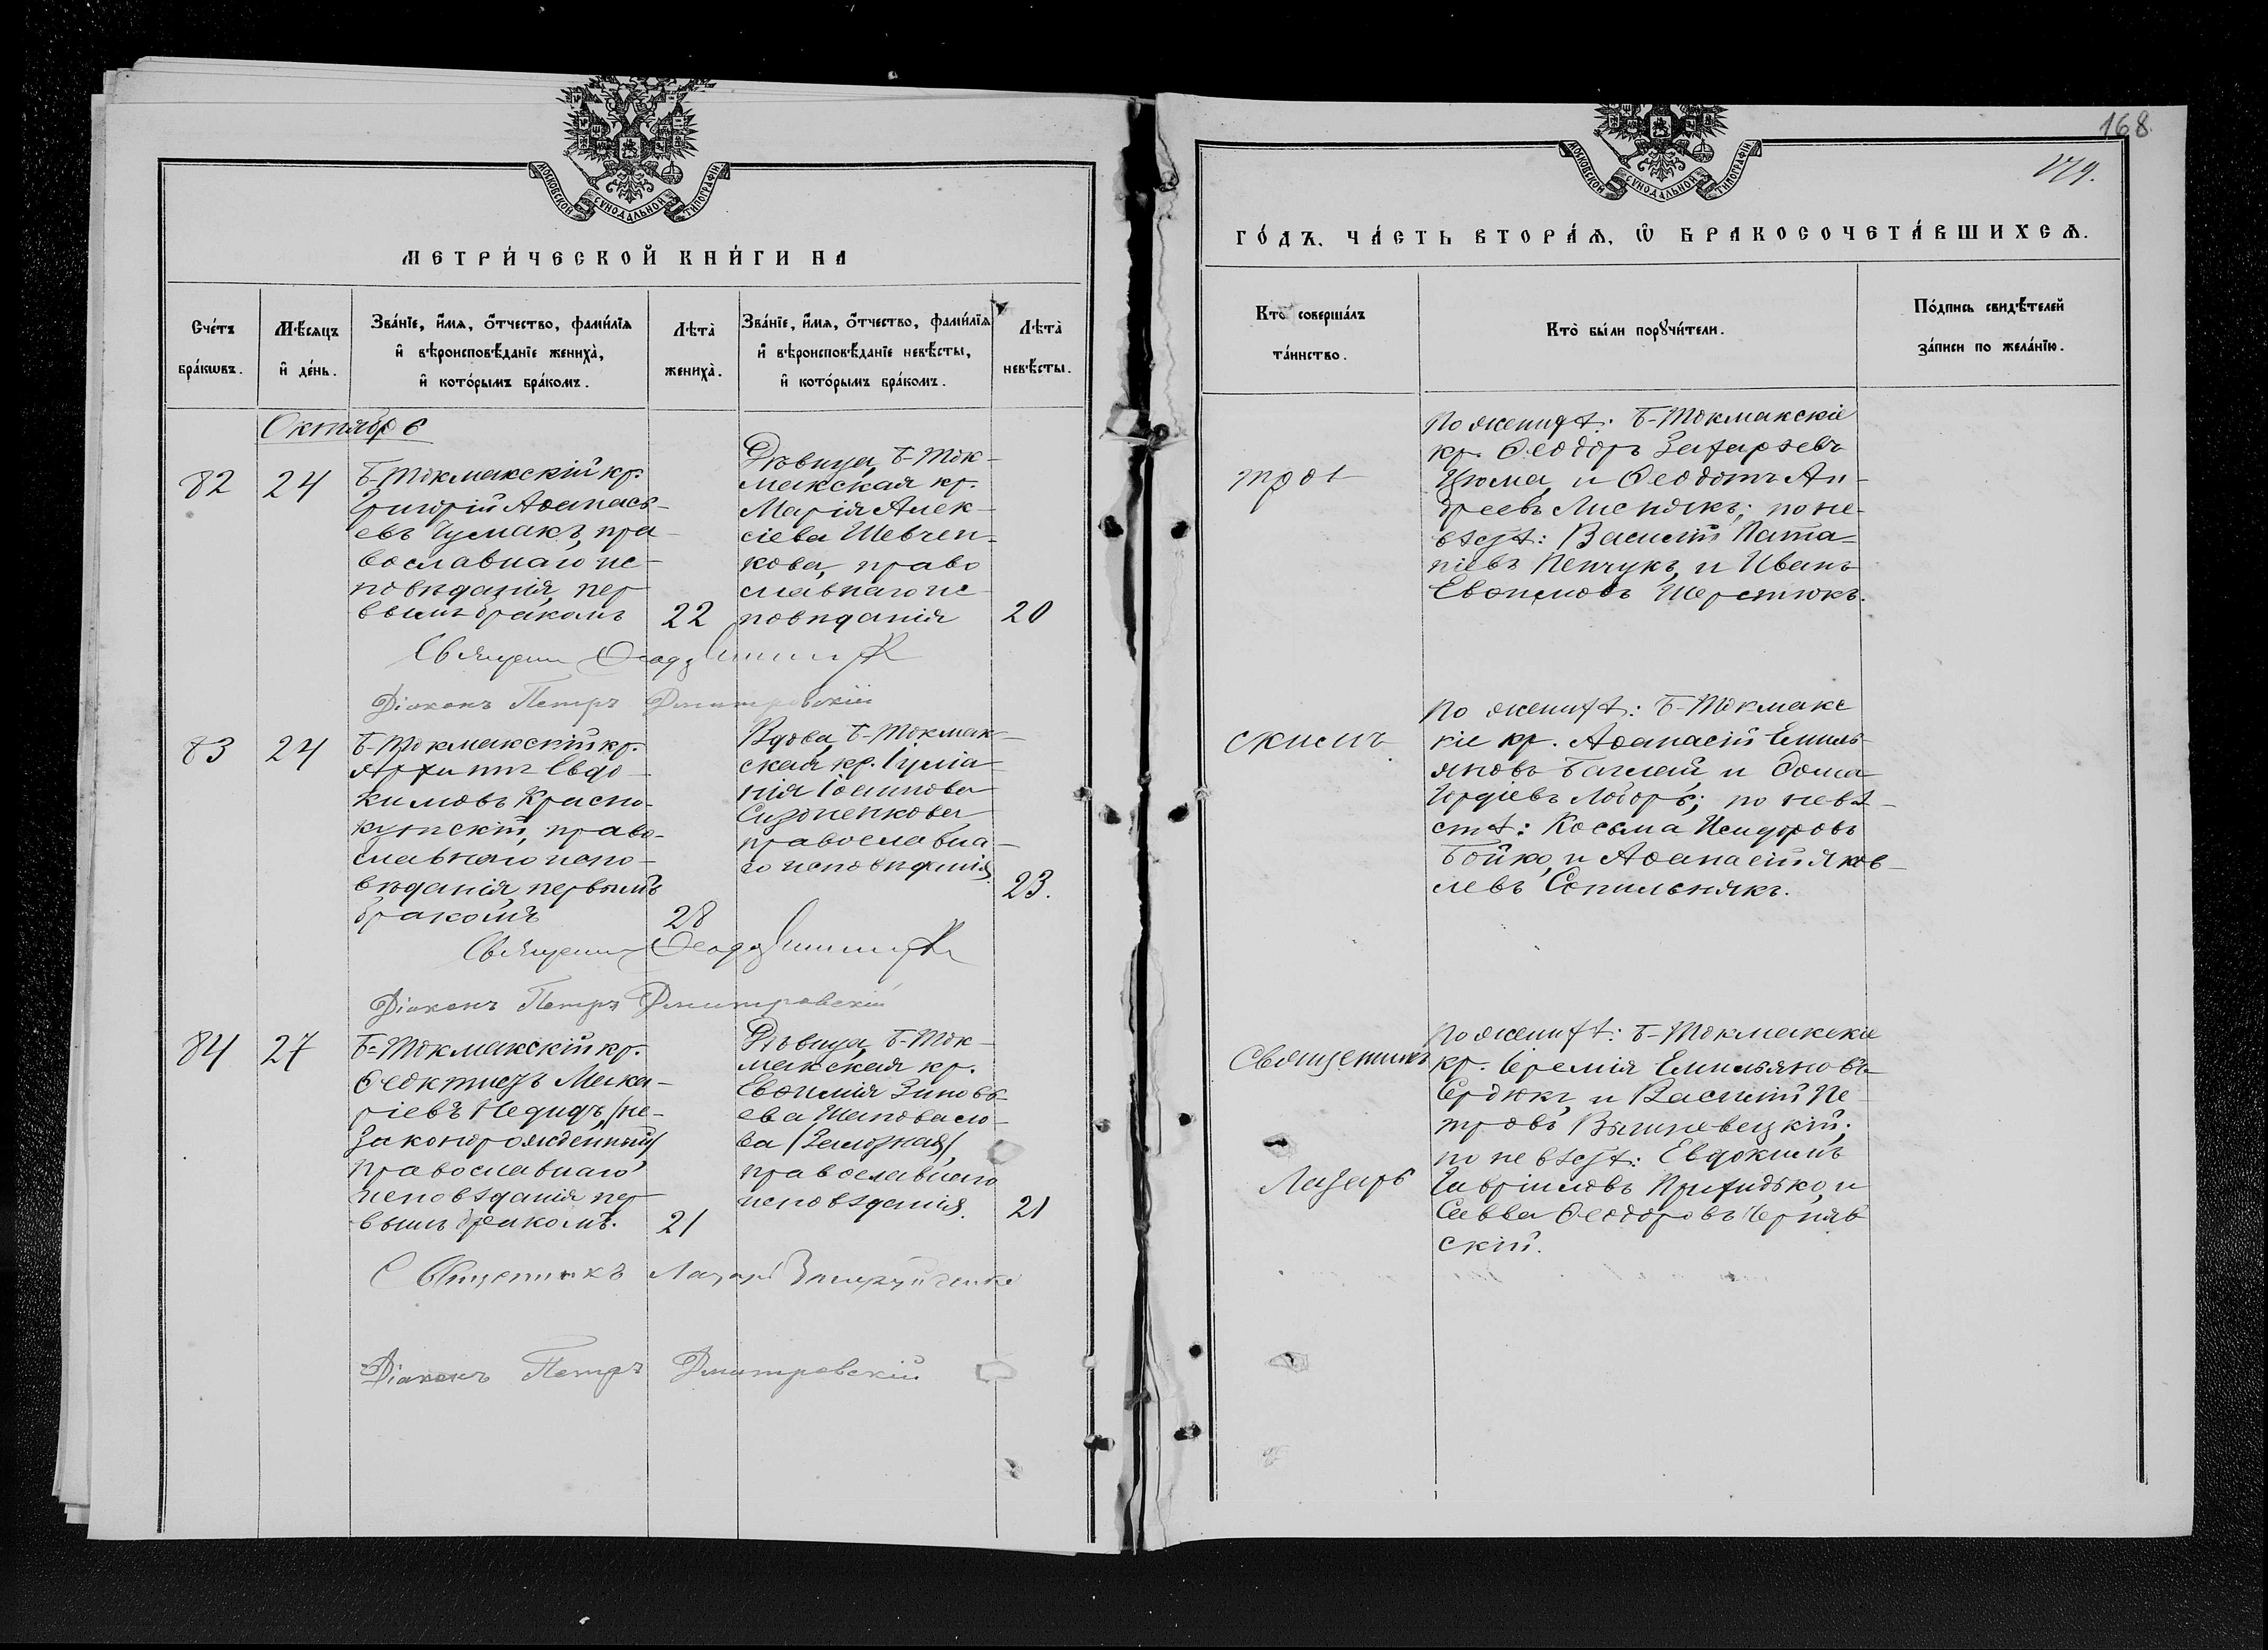 МОСКОВСКОЙ СУНОДАЛЬНОЙ ТИПОГРАФІИ
МЕТРИ́ЧЕСКОЙ КНИ́ГИ НА
Сче́тъ бра́кѡвъ.
Мѣ́сяцъ и҆ де́нь.
Зва́нїе, и҆́мѧ, ѻ҆́тчество, фами́лїѧ
и҆ вѣроисповѣ́данїе жениха̀,
и҆ кото́рымъ бра́комъ.
Лѣта̀ жениха̀.
Зва́нїе, и҆́мѧ, ѻ҆́тчество, фами́лїѧ
и҆ вѣроисповѣ́данїе невѣ́сты,
и҆ кото́рымъ бра́комъ.
Лѣта̀ невѣ́сты.
Октябрь
82
24
Б-Токмакскій кр.
Григорій Аѳанась-
евъ Чумакъ, пра-
вославнаго ис-
повѣданія, пер
вымъ бракомъ
22
Дѣвица, Б-Ток-
макская кр.
Марія Алек-
сіева Шевчен-
кова, право
славнаго ис
повѣданія
20
Священ
Діаконъ Петръ Дмитровскій
83
24
Б-Токмакскій кр.
Архипъ Евдо-
кимовъ Красно-
кутскій, право-
славнаго испо-
вѣданія, первымъ
бракомъ
28
Вдова, Б-Токмак-
ская кр. Іуліа-
нія Іоаннова
Сидоненкова
православна-
го исповѣданія.
23.
Священ
Діаконъ Петръ Дмитровскій
84
27
Б-Токмакскій кр.
Ѳеоктистъ Мака-
ріевъ Недидъ, (не-
законорожденный)
православнаго
исповѣданія пер
вымъ бракомъ.
21
Дѣвица, Б-Ток-
макская кр.
Евѳимія Зиновь-
ева Шаповало-
ва
православнаго
исповѣданія.
21
Священникъ Лазарь
Діаконъ Петръ Дмитровскій
168.
179.
МОСКОВСКОЙ СУНОДАЛЬНОЙ ТИПОГРАФІИ
ГО́ДЪ. ЧА́СТЬ ВТОРА́Ѧ, Ѡ҆ БРАКОСОЧЕТА́ВШИХСѦ.
Кто̀ соверша́лъ
та́инство.
Кто̀ бы́ли порꙋчи́тели.
По́дпись свидѣ́телей
за́писи по жела́нїю.
По женихѣ: Б-Токмакскіе
кр. Ѳеодоръ Захаріевъ
Цюма, и Ѳеодотъ Ан-
дреевъ Лиснякъ; по не-
вѣстѣ: Василій Пата-
піевъ Пенчукъ, и Иванъ
Евѳимовъ Шерстюкъ.
скимъ
По женихѣ: Б-Токмакс
кіе кр. Аѳанасій Емель-
яновъ Баглай, и Ѳома
Гордіевъ Лоборъ; по невѣ-
стѣ: Косьма Исидоровъ
Бойко, и Аѳанасій Яков-
левъ Сопильнякъ.
Священникъ
Лазарь
По женихѣ: Б-Токмакскіе
кр. Іеремія Емельяновъ
Сердюкъ, и Василій Пе-
тровъ Вышневецкій;
по невѣстѣ: Евдокимъ
Гавріиловъ Прихидько, и
Савва Ѳеодоровъ Черняв
скій.